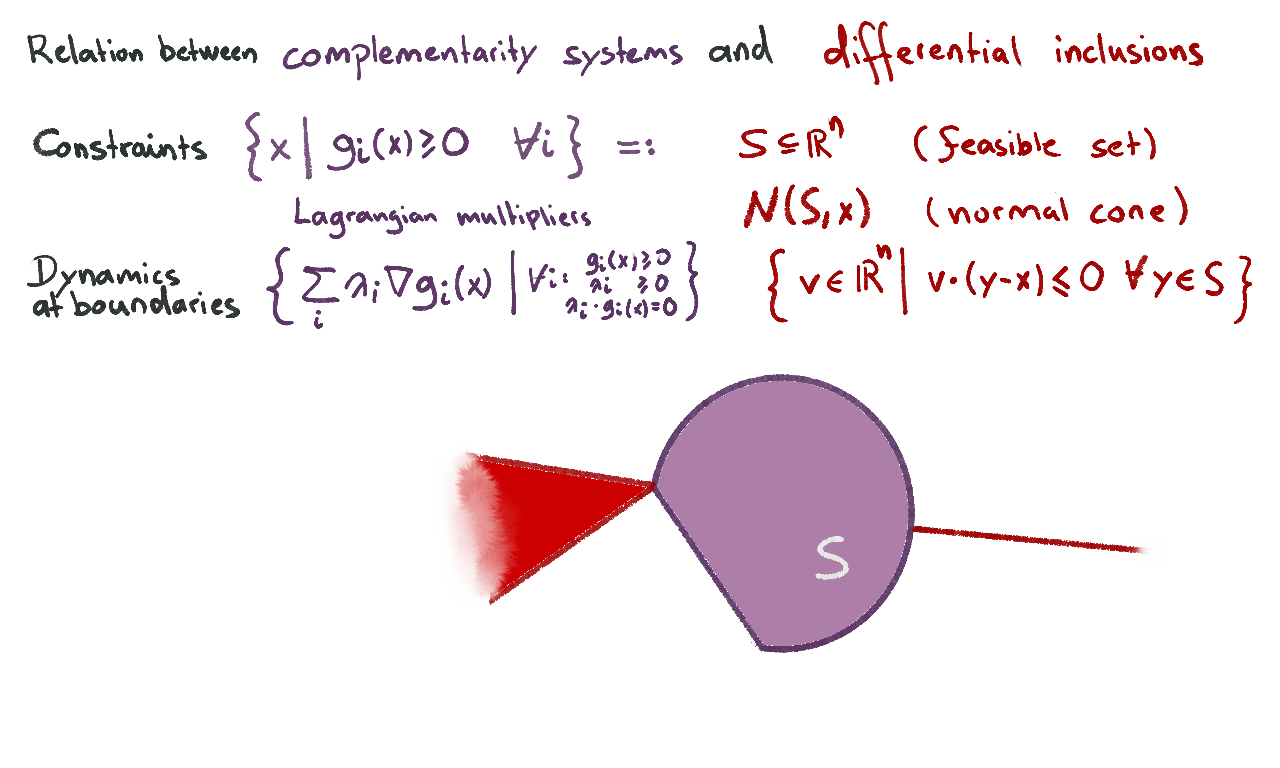 Relation between complementarity systems and differential inclusions
Constraints {x | gᵢ(x) ≥ 0 ∀i} =: S ⊆ ℝⁿ (feasible set)
Lagrangian multipliers N(S, x) (normal cone)
Dynamics at boundaries {∑ᵢ λᵢ ∇gᵢ(x) | ∀i: gᵢ(x) ≥ 0 λᵢ ≥ 0 λᵢ · gᵢ(x) = 0} {v ∈ ℝⁿ | v · (y-x) ≤ 0 ∀y ∈ S}
S